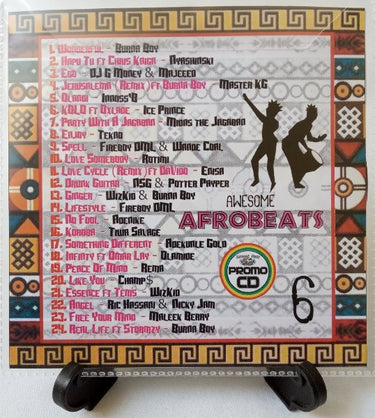 1. Wonderful - Burna Boy
2. Hapu Tu ft Chris Kaiga - Nyashinski
3. Ego - DJ G Money & Majeeed
4. Jerusalema (Remix) ft Burna Boy - Master KG
5. Olandi - Innoss'B
6. KOLO ft Oxlade - Ice Prince
7. Party With A Jagaban - Midas the Jagaban
8. Enjoy - Tekno
9. Spell - Fireboy DML & Wande Coal
10. Love Somebody - Rotimi
11. Love Cycle (Remix) ft Davido - Enisa
12. Drunk Guitar - NSG & Potter Payper
13. Ginger - WizKid & Burna Boy
14. Lifestyle - Fireboy DML
15. No Fool - Adenike
16. Koroba - Tiwa Savage
17. Something Different - Adekunle Gold
18. Infinty ft Omah Lay - Olamide
19. Peace Of Mind - Rema
20. Like You - Champ$
21. Essence ft Tems - WizKid
22. Angel - Ric Hassani & Nicky Jam
23. Free Your Mind - Maleek Berry
24. Real Life ft Stormzy - Burna Boy
AWESOME
AFROBEATS
PROMO
CD
6